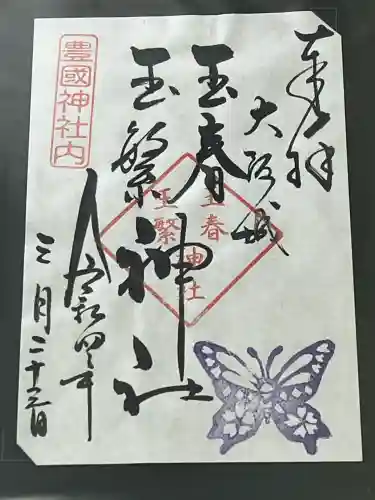 奉拝
大阪城
玉春
玉繁
神社
豊國神社内
玉春
玉繁
神社
令和四年
三月二十三日